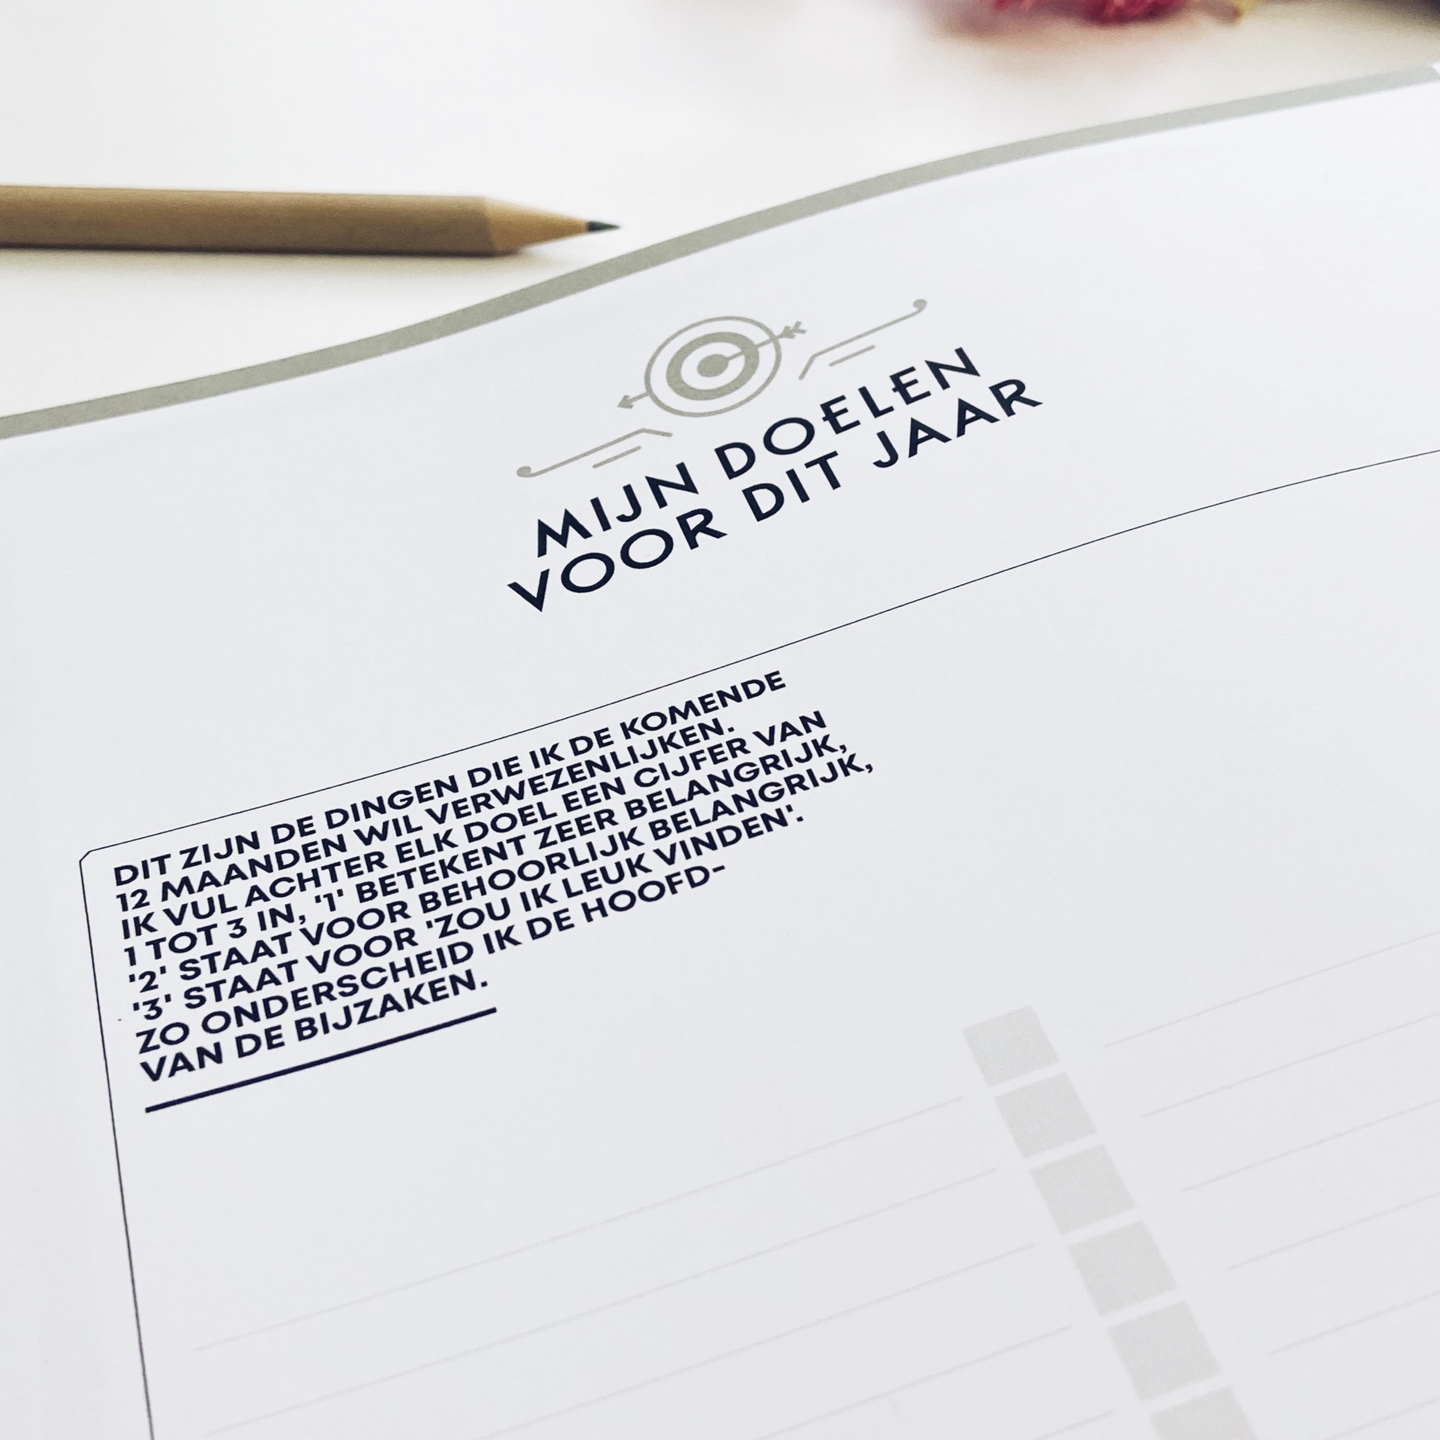 MIJN DOELEN
VOOR DIT JAAR
DIT ZIJN DE DINGEN DIE IK DE KOMENDE
12 MAANDEN WIL VERWEZENLIJKEN.
IK VUL ACHTER ELK DOEL EEN CIJFER VAN
1 TOT 3 IN, '1' BETEKENT ZEER BELANGRIJK,
'2' STAAT VOOR BEHOORLIJK BELANGRIJK,
'3' STAAT VOOR 'ZOU IK LEUK VINDEN'.
ZO ONDERSCHEID IK DE HOOFD-
VAN DE BIJZAKEN.